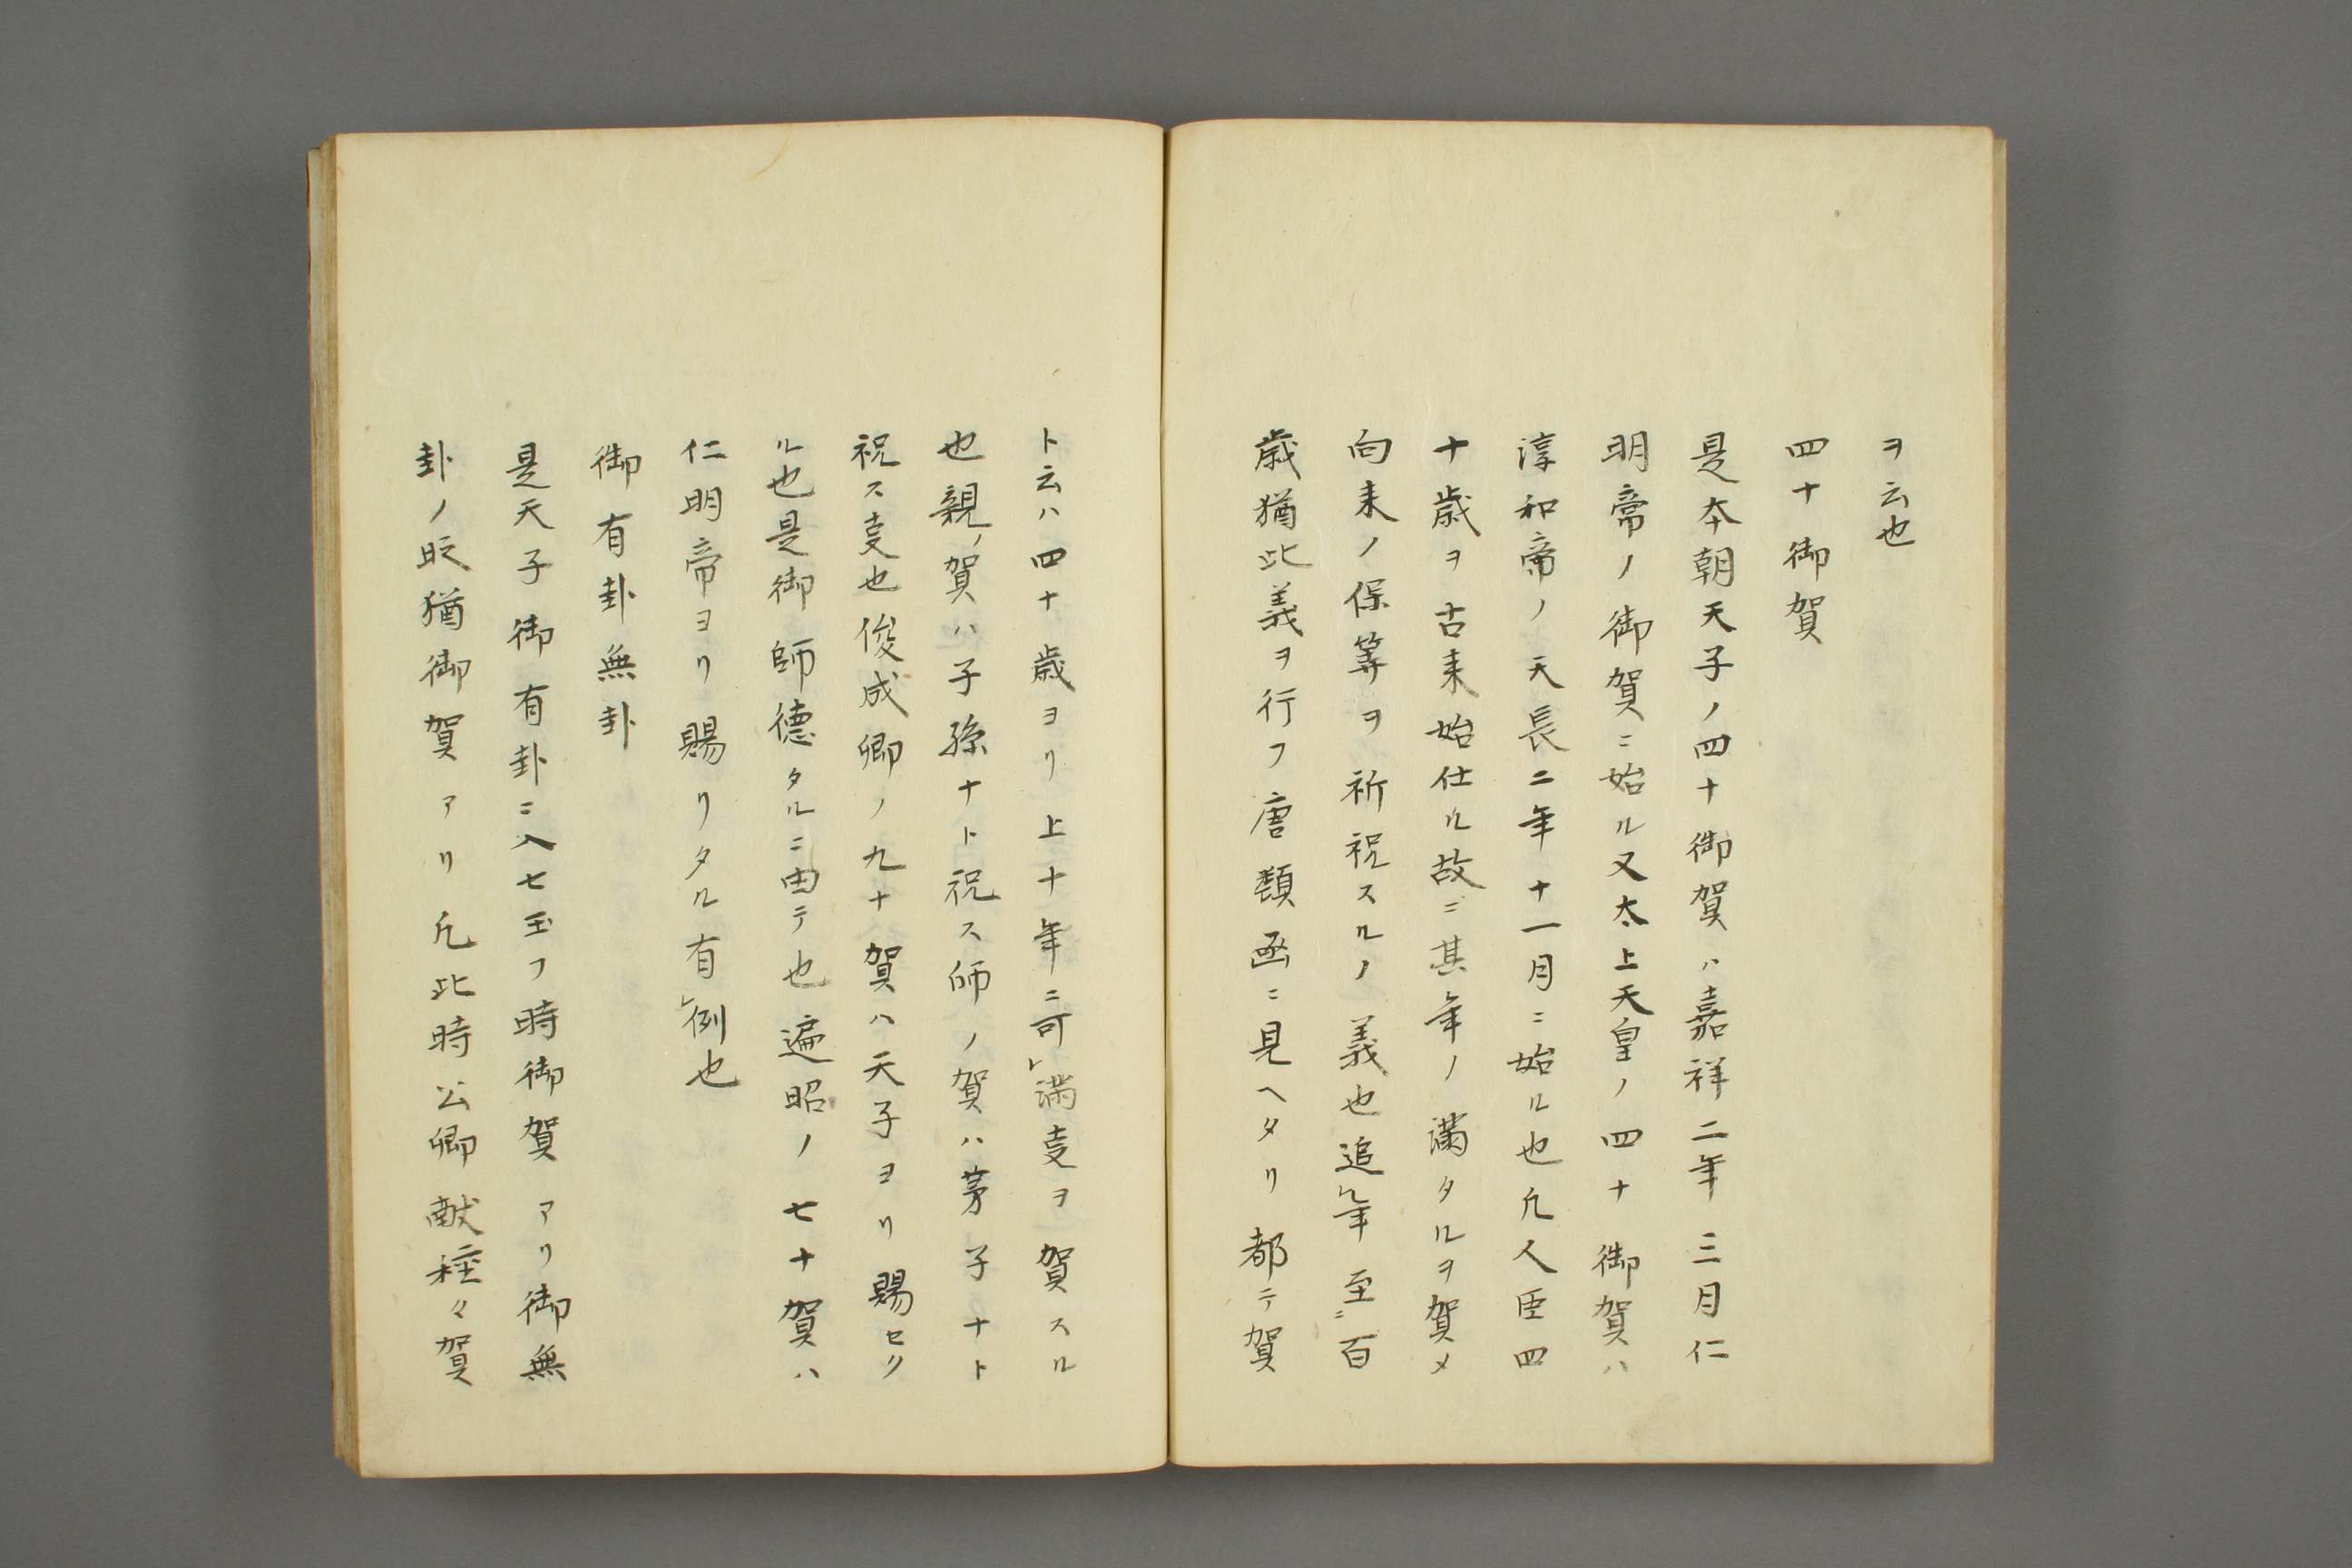 ヲ云也
四十御賀
是本朝天子ノ四十御賀ハ嘉祥二年三月仁
明帝ノ御賀ニ始ル又太上天皇ノ四十御賀ハ
淳和帝ノ天長二年十一月ニ始ル也凡人臣四
十歳ヲ古来始仕ル故ニ其年ノ満タルヲ賀メ
向来ノ保筭ヲ祈祝スルノ義也追年至ニ百
歳猶此義ヲ行フ唐類函ニ見ヘタリ都テ賀
ト云ハ四十歳ヨリ上十年ニ可レ満叓ヲ賀スル
也親ノ賀ハ子孫ナト祝ス師ノ賀ハ苐子ナト
祝ス叓也俊成卿ノ九十賀ハ天子ヨリ賜セラ
ル也是御師徳タルニ由テ也遍昭ノ七十賀ハ
仁明帝ヨリ賜リタル有レ例也
御有卦無卦
是天子御有卦ニ入七玉フ時御賀アリ御無
卦ノ時猶御賀アリ凡此時公卿献種々賀